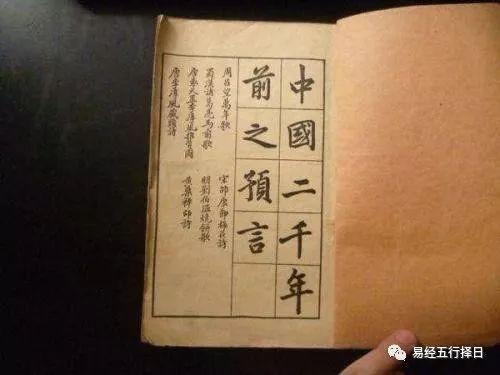 中國二千年
前之預言
周呂望萬年歌
蜀漢諸葛亮馬前歌
唐袁天罡李淳風推背圖
唐李淳風藏頭詩
宋邵康節梅花詩
明劉伯溫燒餅歌
黃蘗禪師詩
易经五行择日